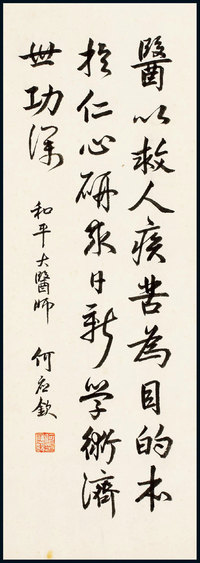 醫以救人疾苦為目的本
於仁心研求日新学術濟
世功深
和平大醫師
何应欽